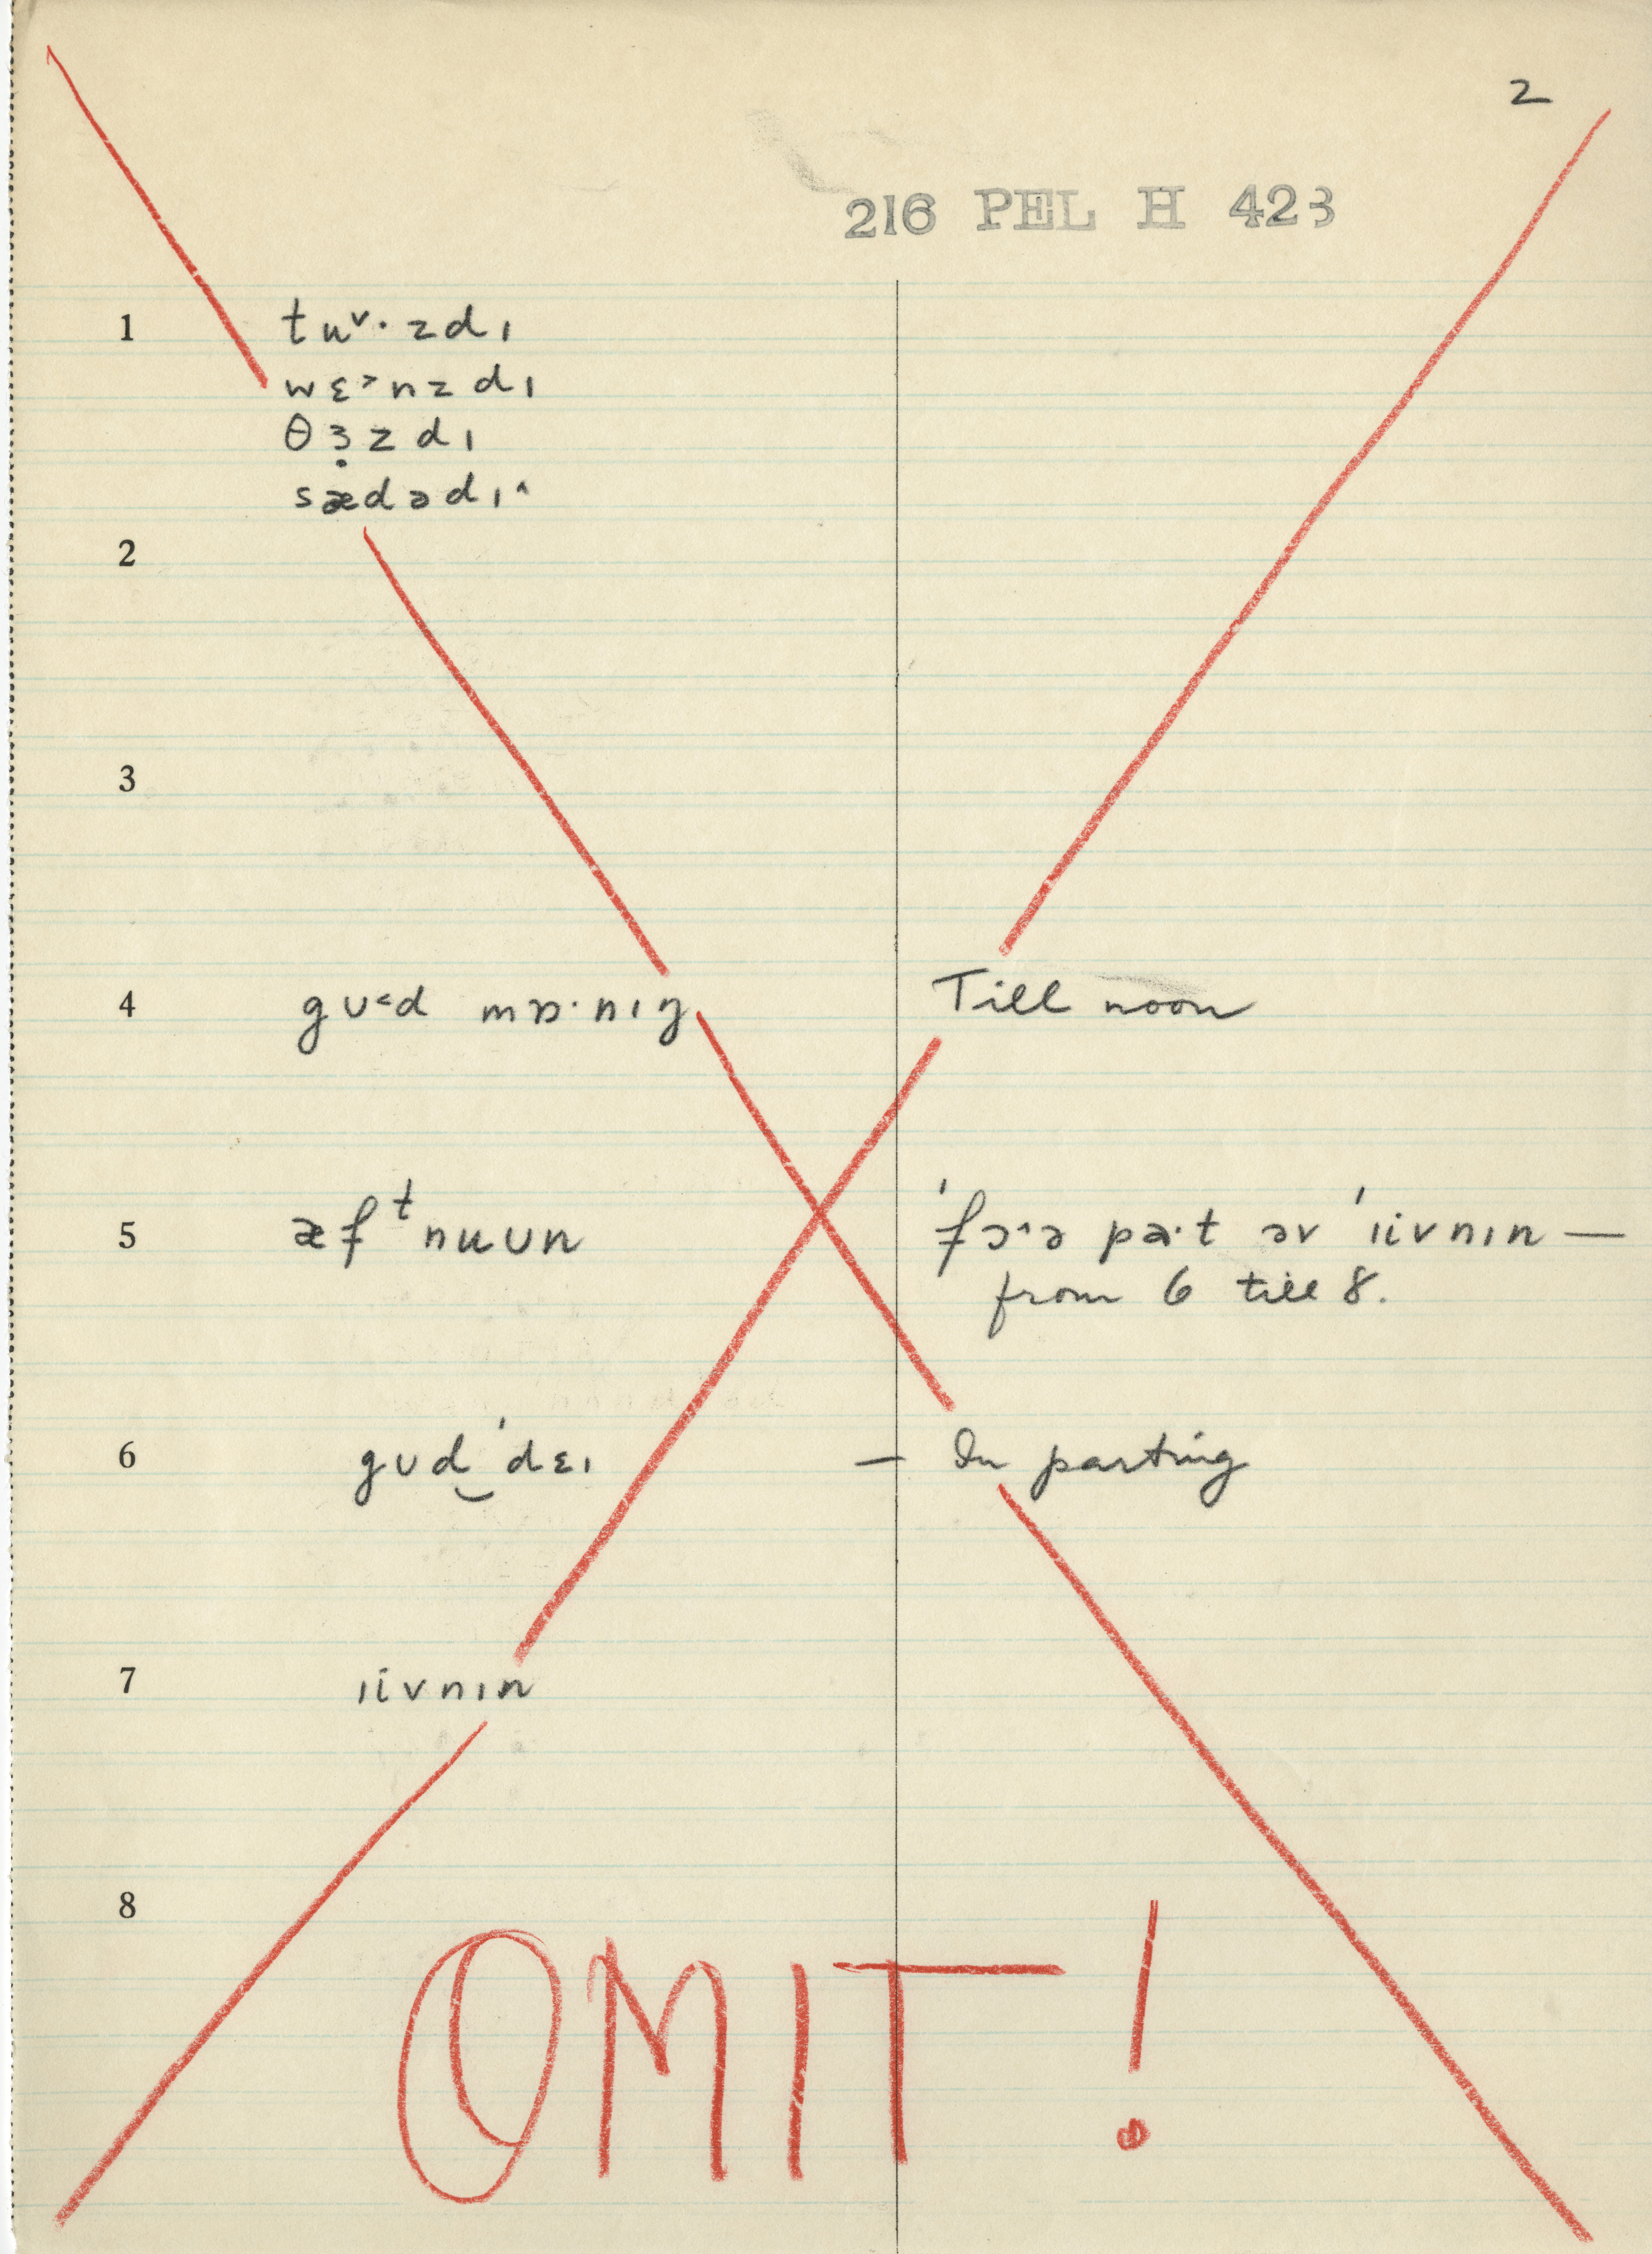 2
216 PEL H 423
1 tuᵛ·zdɪ
wɛ˃nzdɪ
θɜ̣zdɪ
sædədɪ˄
2
3
4 gʊ˂d mɒ·nɪŋ Till noon
5 æfᵗnuʊn ˈfɔ˄ə pa·t əv ˈɪivnɪn —
from 6 till 8.
6 gʊd̮ ˈdɛɪ — In parting
7 ɪivnɪn
8
OMIT!